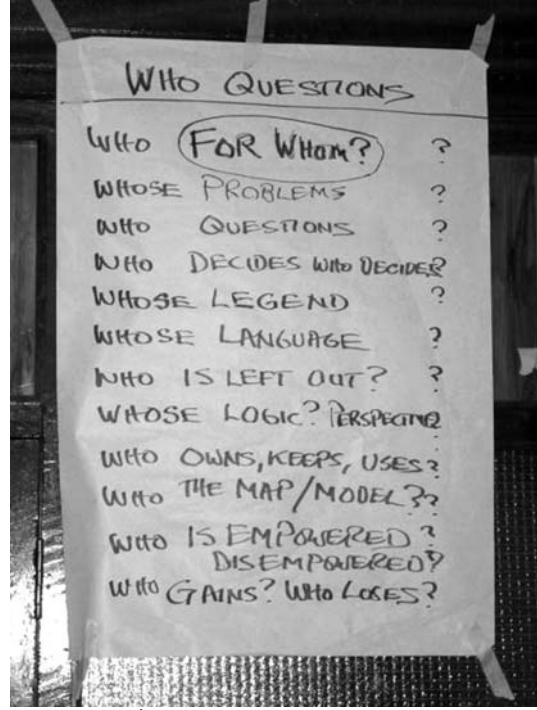 WHO QUESTIONS
WHO FOR WHOM? ?
WHOSE PROBLEMS ?
WHO QUESTIONS ?
WHO DECIDES WHO DECIDES?
WHOSE LEGEND ?
WHOSE LANGUAGE ?
WHO IS LEFT OUT? ?
WHOSE LOGIC? PERSPECTIVE?
WHO OWNS, KEEPS, USES?
WHO THE MAP/MODEL??
WHO IS EMPOWERED?
DISEMPOWERED?
WHO GAINS? WHO LOSES?